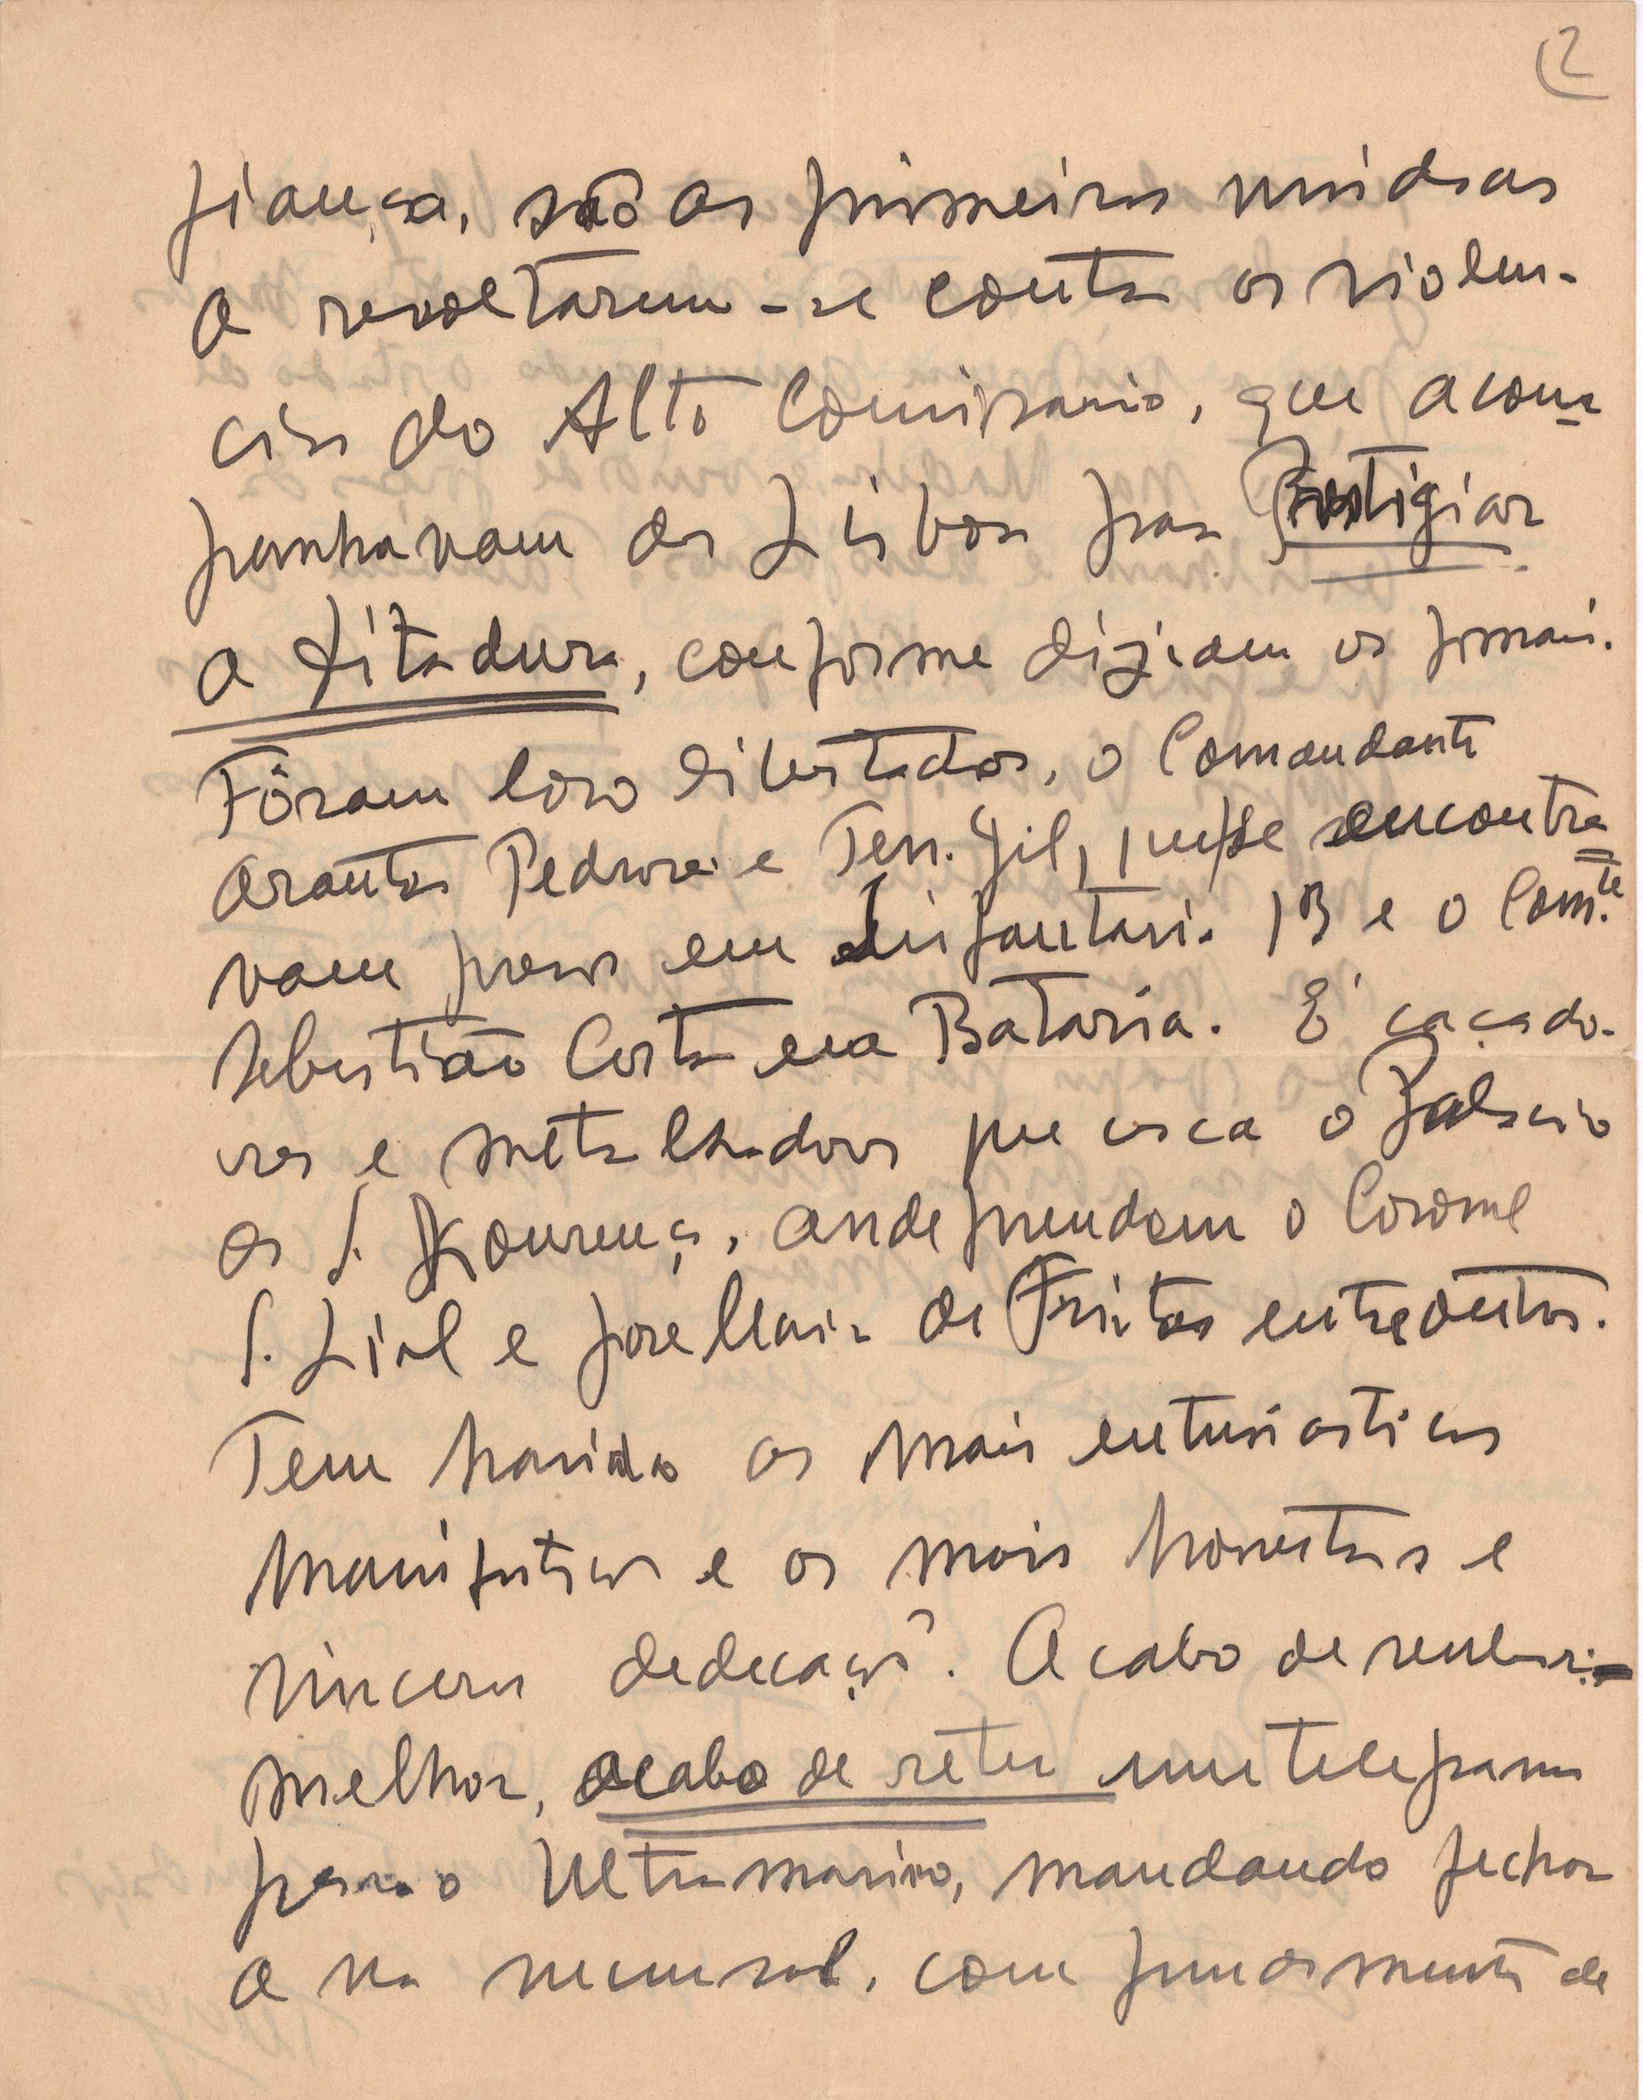 2
fiança, são as primeiras unidades
a revoltarem-se contra as violen-
cias do Alto Comissario, que acom-
panhavam de Lisboa para Prestigiar
a Ditadura, conforme diziam os jornais.
Fôram logo libertados, o Comandante
Arantes Pedroso e Ten. Gil, que se encontra-
vam presos em Infantaria 13 e o Com.te
Sebastião Costa em Bataria. É caçado-
res e metralhadoras que cerca o Palacio
de S. Lourenço, onde prendem o Coronel
S. Lial e José Maria de Freitas entre outros.
Tem havido as mais entusiasticas
manifestações e as mais honestas e
sinceras dedicações. Acabo de
melhor, acabo de reter um telegrama
para o Ultramarino, mandando fechar
a sua sucursal, com de